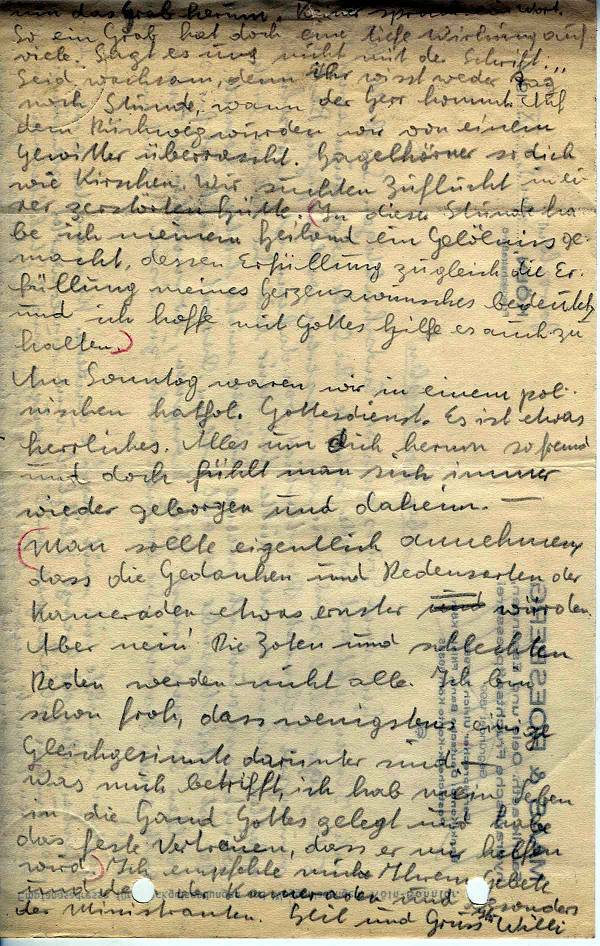 um das Grab herum. Keiner sprach ein Wort.
So ein Grab hat doch eine tiefe Wirkung auf
viele. Sagt es uns nicht mit der Schrift „
Seid wachsam, denn Ihr wisst weder Tag
noch Stunde, wann der Herr kommt. Auf
dem Rückweg wurden wir von einem
Gewitter überrascht. Hagelkörner so dick
wie Kirschen. Wir suchten Zuflucht in ei-
ner zerstörten Hütte. (In dieser Stunde ha-
be ich meinem Heiland ein Gelöbnis ge-
macht, dessen Erfüllung zugleich die Er-
füllung meines Herzenswunsches bedeutet
und ich hoffe mit Gottes Hilfe es auch zu
halten.)
Am Sonntag waren wir in einem pol-
nischen kathol. Gottesdienst. Es ist etwas
herrliches. Alles um dich herum so fremd
und doch fühlt man sich immer
wieder geborgen und daheim. —
(Man sollte eigentlich annehmen,
dass die Gedanken und Redensarten der
Kameraden etwas ernster und würden.
Aber nein! Die Zoten und schlechten
Reden werden nicht alle. Ich bin
schon froh, dass wenigstens einige
Gleichgesinnte darunter sind.
Was mich betrifft, ich hab mein Leben
in die Hand Gottes gelegt und habe
das feste Vertrauen, dass er mir helfen
wird.) Ich empfehle mich Ihrem Gebete
und der Kameraden und besonders
der Ministranten. Heil und Gruss Ihr Willi